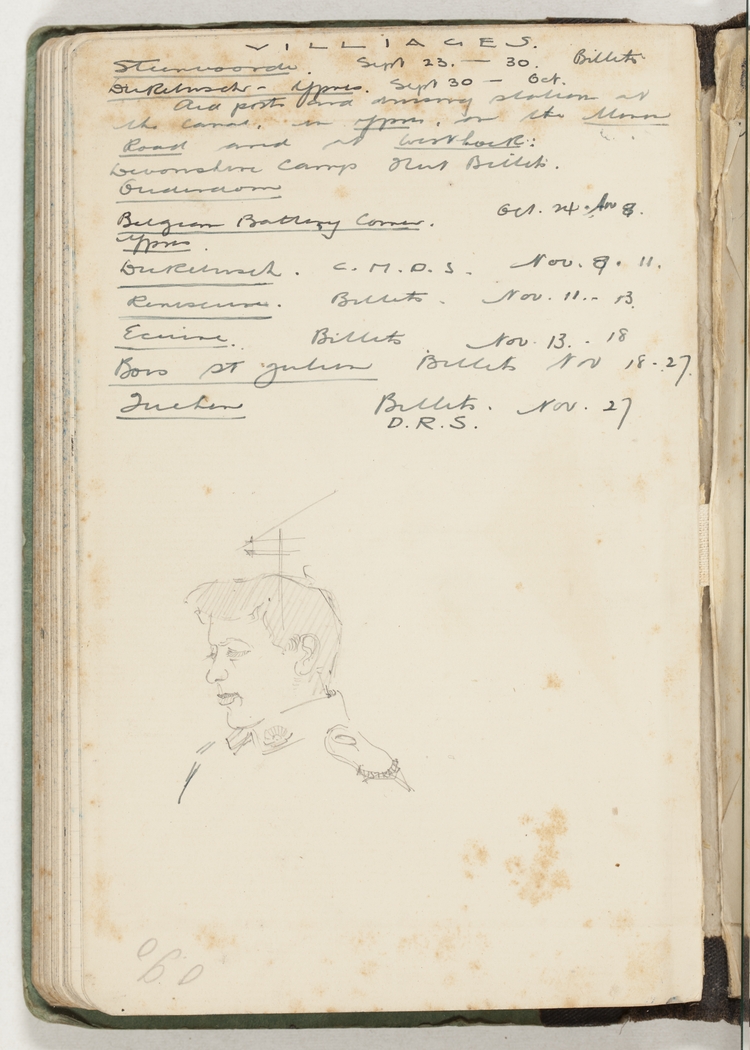 VILLIAGES.
Steenvoorde. Sept 23. — 30. Billets
Dickebusch - Ypres. Sept 30 — Oct.
Aid posts and dressing station at
the Canal, in Ypres, on the Menin
Road and at Westhoek:
Devonshire Camp Hut Billets.
Ouderdom
Belgian Battery Corner. Oct. 24. Nov 8.
Ypres.
Dickebusch. C.M.D.S. Nov. 8. 11.
Renescure. Billets. Nov. 11. - 13.
Ecuire. Billets Nov. 13. - 18
Bois St Julien Billets Nov 18-27.
Billets. Nov. 27
D.R.S.